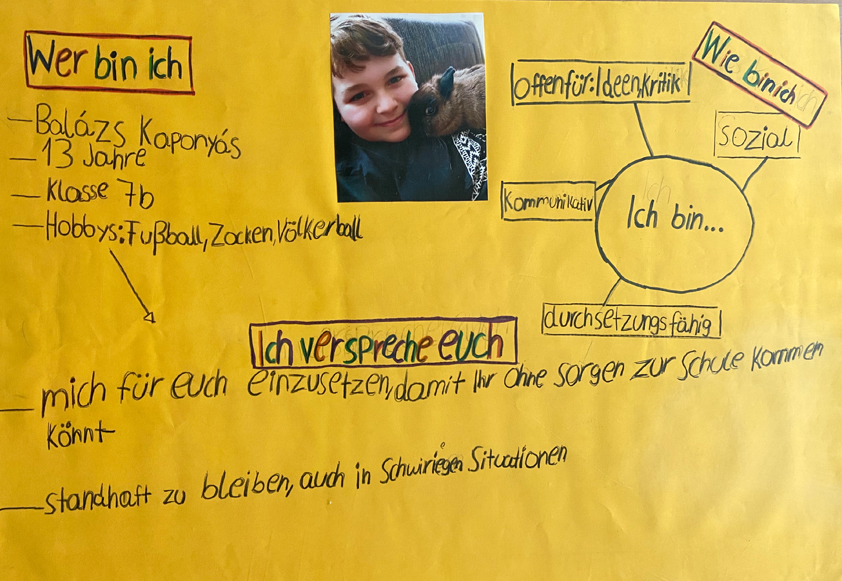 Wer bin ich
– Balázs Kaponyás
– 13 Jahre
– Klasse 7b
– Hobbys: Fußball, Zocken, Völkerball
Wie bin ich
offen für: Ideen, kritik
sozial
kommunikativ
Ich bin...
durchsetzungsfähig
Ich verspreche euch
– mich für euch einzusetzen, damit Ihr ohne sorgen zur Schule kommen
könnt
– standhaft zu bleiben, auch in Schwiriegen Situationen